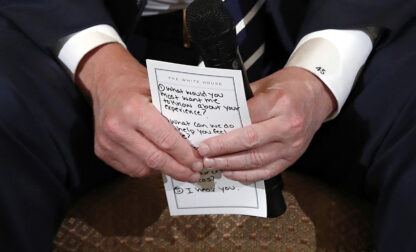 THE WHITE HOUSE
① What would you
most want me
to know about your
experience?
What can we do
help you feel
?
⑤ I hear you
45